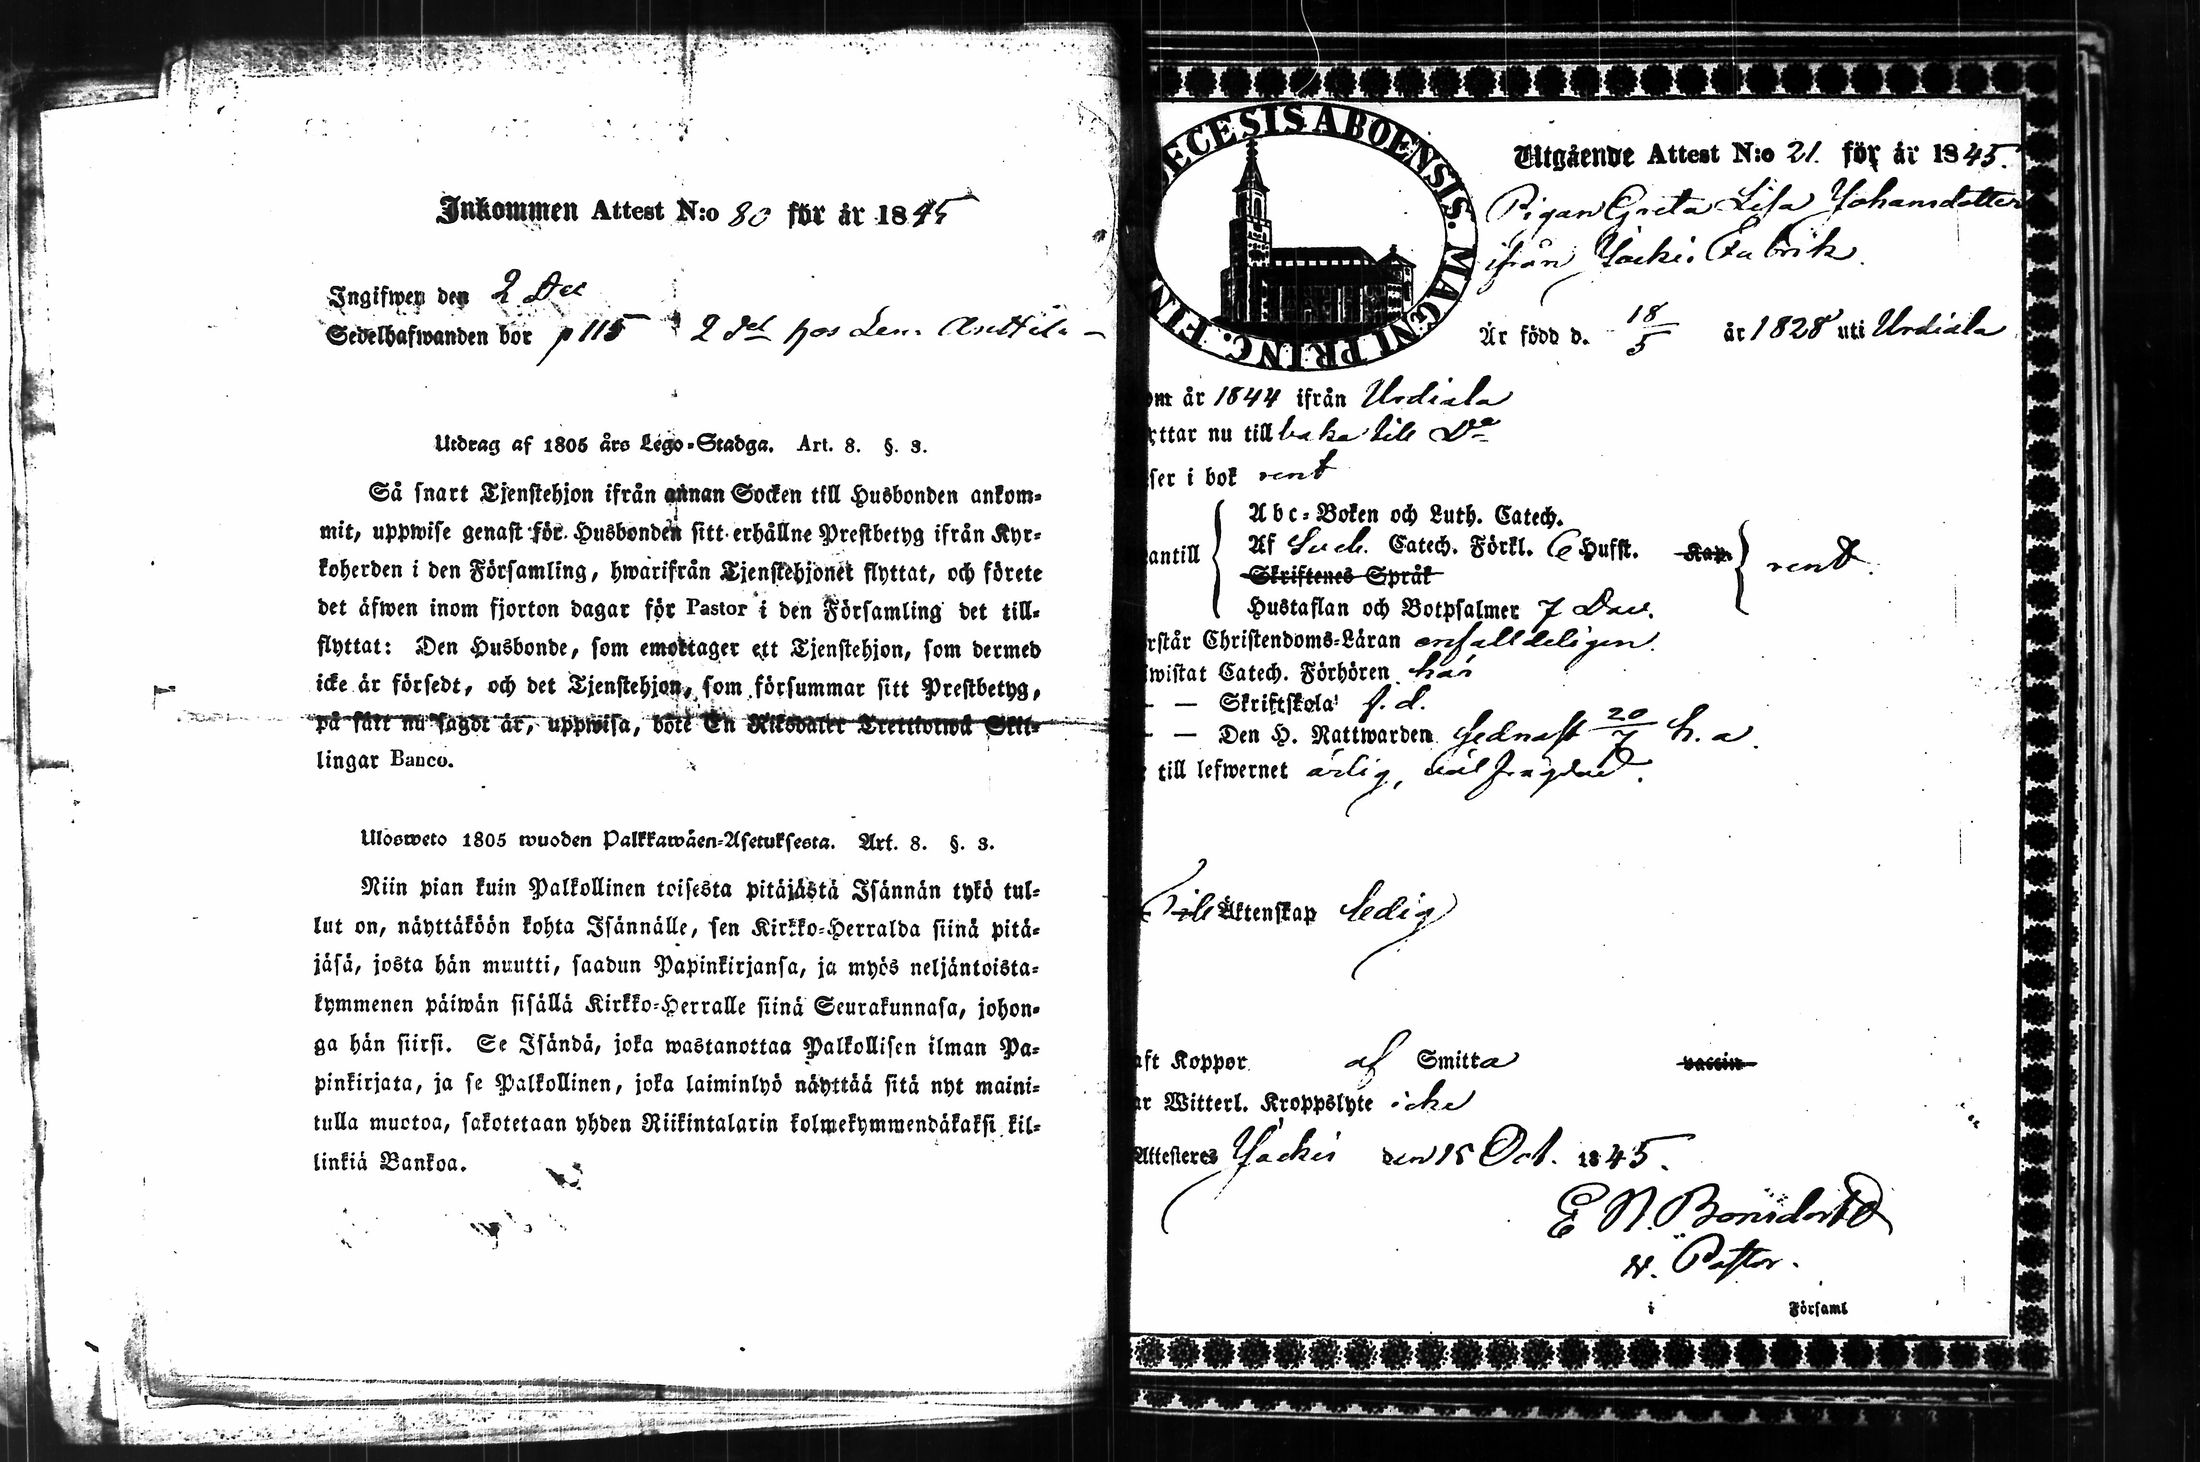 Inkommen Attest N:o 80 för år 1845
Ingifwen den 2 Dec
Sedelhafwanden bor p 115 2 del hos Len. Anttila
Utdrag af 1805 års Lego-Stadga. Art. 8. §. 3.
Så snart Tjenstehjon ifrån annan Socken till Husbonden ankom-
mit, uppwise genast för Husbonden sitt erhållne Prestbetyg ifrån Kyr-
koherden i den Församling, hwarifrån Tjenstehjonet flyttat, och förete
det äfwen inom fjorton dagar för Pastor i den Församling det till-
flyttat: Den Husbonde, som emottager ett Tjenstehjon, som dermed
icke är försedt, och det Tjenstehjon, som försummar sitt Prestbetyg,
på sätt nu sagdt är, uppwisa, böte En Riksdaler Trettiotwå Skil-
lingar Banco.
Ulosweto 1805 wuoden Palkkawäen-Asetuksesta. Art. 8. §. 3.
Niin pian kuin Palkollinen toisesta pitäjästä Isännän tykö tul-
lut on, näyttäköön kohta Isännälle, sen Kirkko-Herralda siinä pitä-
jäsä, josta hän muutti, saadun Papinkirjansa, ja myös neljäntoista-
kymmenen päiwän sisällä Kirkko-Herralle siinä Seurakunnasa, johon-
ga hän siirsi. Se Isändä, joka wastanottaa Palkollisen ilman Pa-
pinkirjata, ja se Palkollinen, joka laiminlyö näyttää sitä nyt maini-
tulla muotoa, sakotetaan yhden Riikintalarin kolmekymmendäkaksi kil-
linkiä Bankoa.
ECESIS ABOENSIS. MAGNI PRINC. FIN
Utgående Attest N:o 21. för år 1845.
Pigan Greta Lisa Johansdotter
ifrån Jockis Fabrik.
Är född d. 18/5 år 1828 uti Urdiala
om år 1844 ifrån Urdiala
yttar nu tillbaka till Do
ser i bok rent
antill
Abc-Boken och Luth. Catech.
Af Sueb. Catech. Förkl. 6 Hufst. Kap.
Skriftenes Språk
Hustaflan och Botpsalmer 7 Dav.
rent.
rstår Christendoms-Läran enfalldeligen.
wistat Catech. Förhören här
— — Skriftskola s. d.
— — Den H. Nattwarden sednast 20/7 h. a.
till lefwernet ärlig, väl frägdad.
Till Äktenskap ledig
aft Koppor af Smitta vaccin
ar Witterl. Kroppslyte icke
Attesteres Jockis den 15 Oct. 1845.
E N. Bonsdorff
v. Pastor.
i Församl